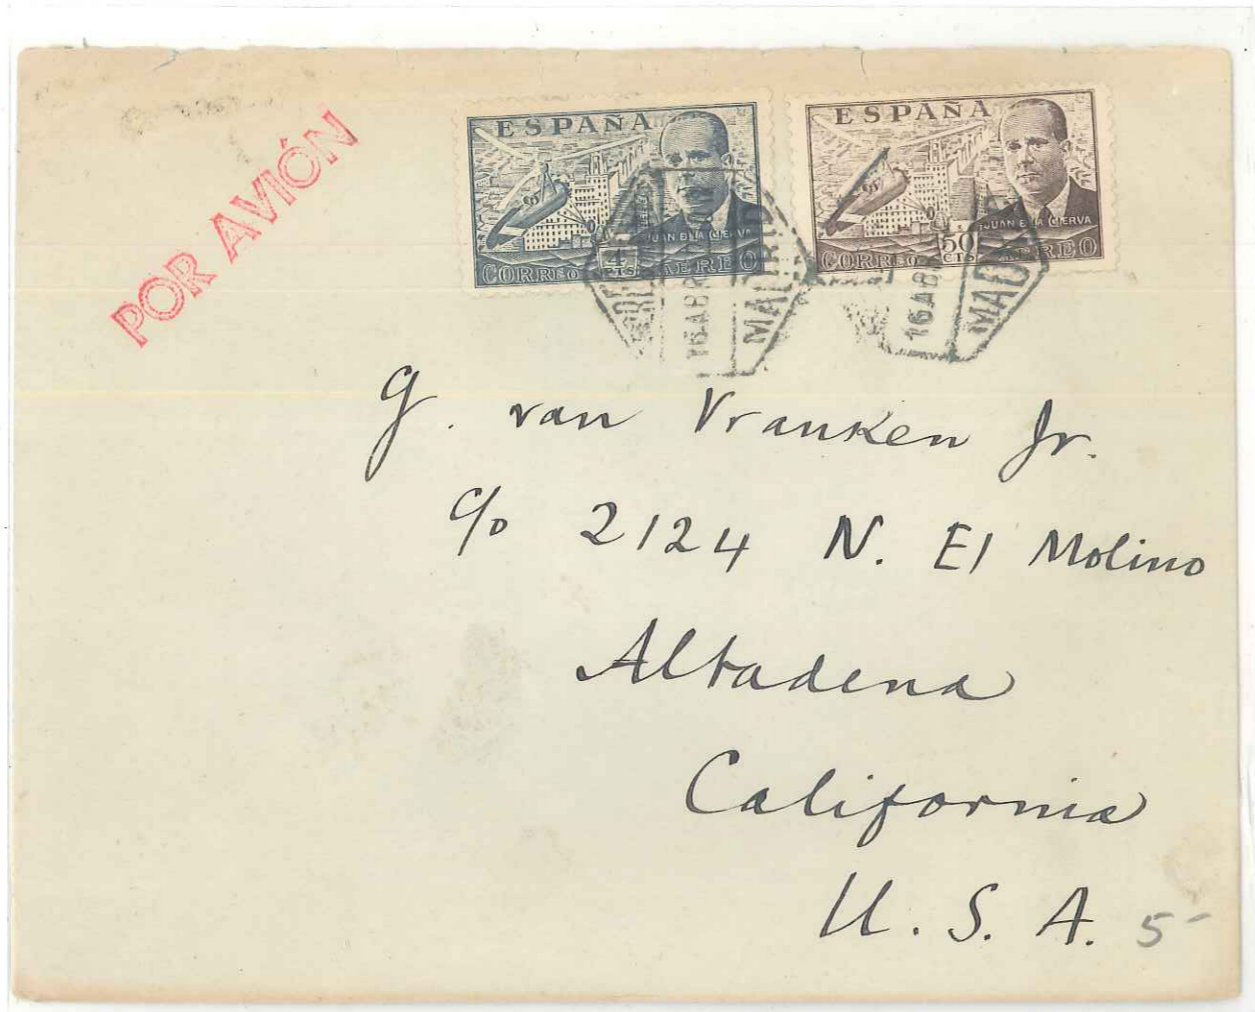 POR AVIÓN
ESPAÑA
JUAN DE LA CIERVA
4
PTS
CORREO AEREO
ESPAÑA
JUAN DE LA CIERVA
50
CTS
CORREO AEREO
16 ABR
MADRID
16 ABR
MADRID
G. van Vranken Jr.
c/o 2124 N. El Molino
Altadena
California
U. S. A.
5-